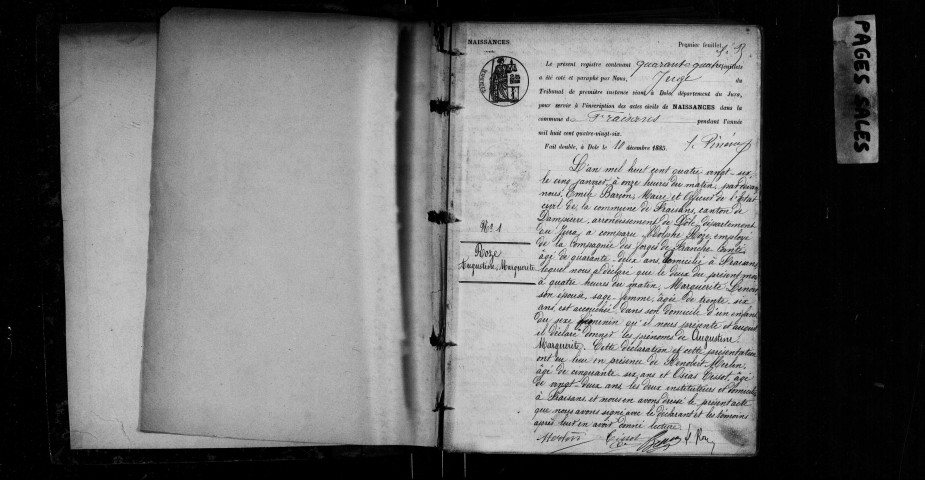 NAISSANCES
Premier feuillet
Le présent registre contenant quarante quatre feuillets
a été coté et paraphé par Nous, Juge du
Tribunal de première instance séant à Dole, département du Jura,
pour servir à l'inscription des actes civils de NAISSANCES dans la
commune de Fraisans pendant l'année
mil huit cent quatre-vingt-six.
Fait double, à Dole le 10 décembre 1885.
L'an mil huit cent quatre vingt-six
le cinq janvier à onze heures du matin, par devant
nous, Emile Barion, Maire et Officier de l'état
civil de la commune de Fraisans, canton de
Dampierre, arrondissement de Dole, département
du Jura, a comparu Adolphe Roze employé
de la Compagnie des forges de Franche Comté
âgé de quarante-deux ans domicilié à Fraisans
lequel nous a déclaré que le deux du présent mois
à quatre heures du matin, Marguerite
son épouse, sage-femme, âgée de trente six
ans, est accouchée dans son domicile d'un enfant
du sexe féminin qu'il nous présente et auquel
il déclare donner les prénoms de Augustine
Marguerite. Cette déclaration et cette présentation
ont eu lieu en présence de Merlin,
âgé de cinquante-six ans et Oscar Tissot, âgé
de vingt-deux ans les deux instituteurs et domiciliés
à Fraisans et nous en avons dressé le présent acte
que nous avons signé avec le déclarant et les témoins
après leur en avoir donné lecture.
Merlin Tissot
Nº 1
Roze
Augustine-Marguerite
PAGES SALES